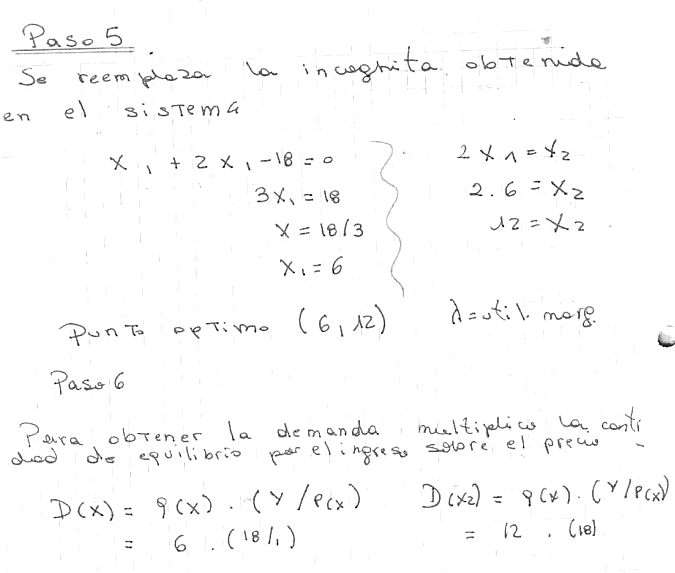 Paso 5
Se reemplaza la incognita obtenida
en el sistema
x₁ + 2x₁ - 18 = 0
3x₁ = 18
x = 18/3
x₁ = 6
2x1 = x2
2.6 = x2
12 = x2
Punto optimo (6, 12)
λ = util. marg.
Paso 6
Para obtener la demanda multiplico la canti
dad de equilibrio por el ingreso sobre el precio
D(x) = q(x) . (Y/P(x)
= 6 . (18/1)
D(x2) = q(x) . (Y/P(x)
= 12 . (18)